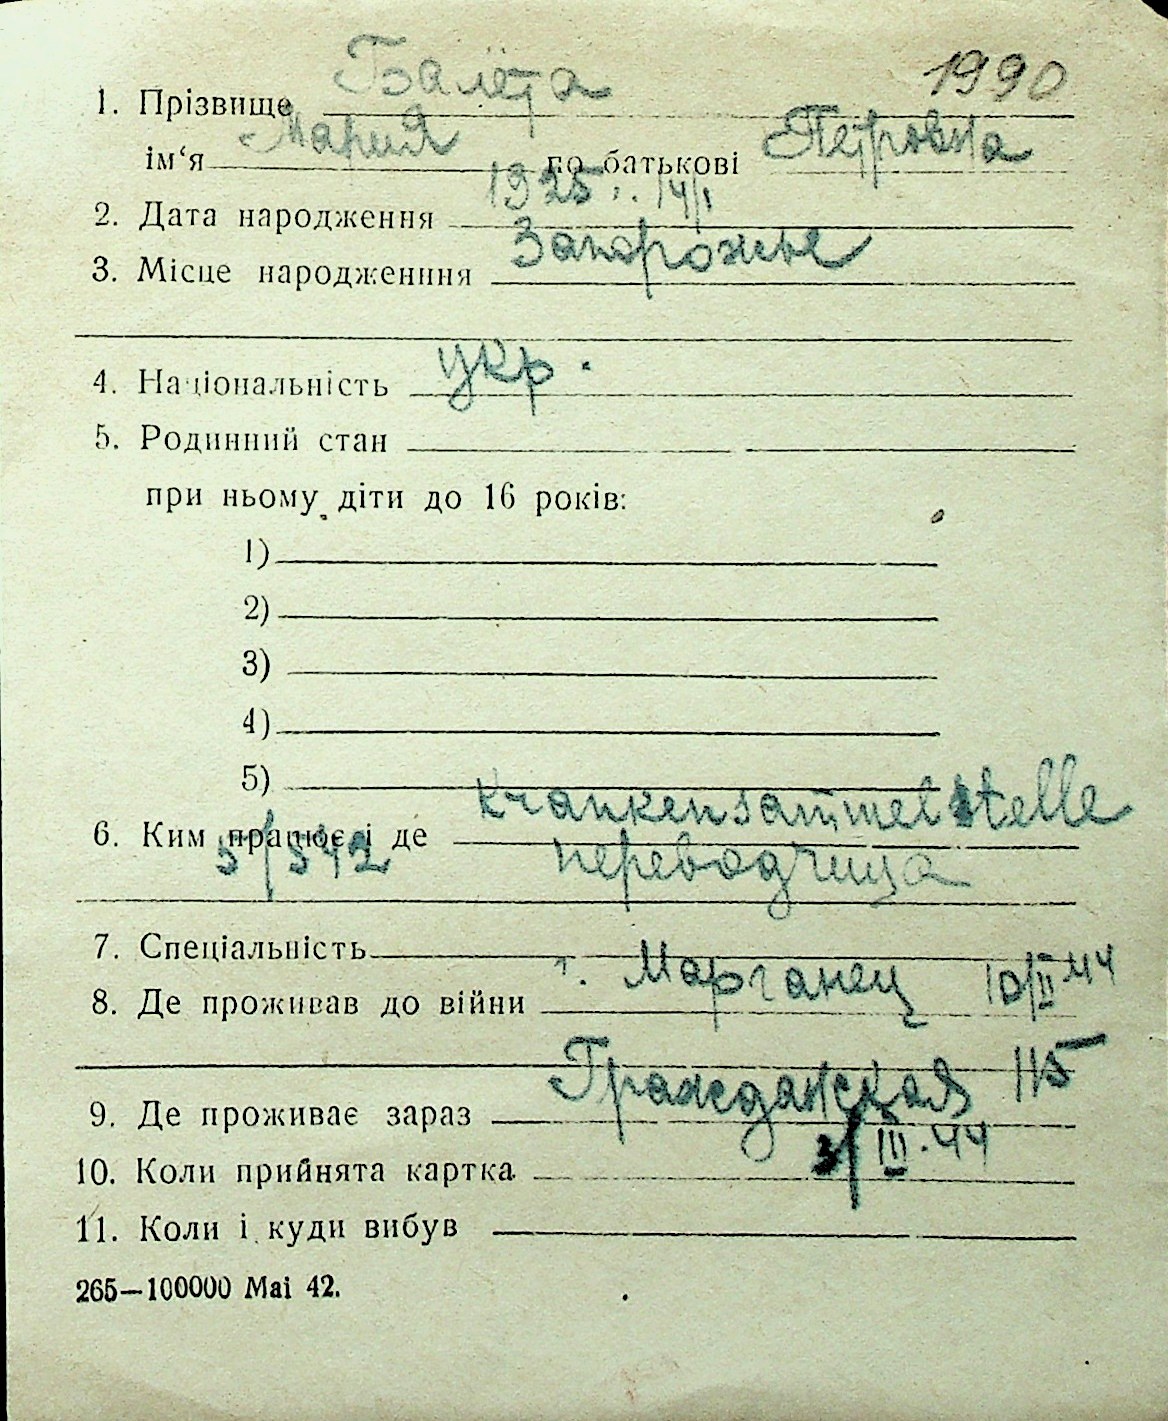 1990
1. Прізвище Балёта
ім‘я Мария по батькові Петровна
2. Дата народження 1925 14/I
3. Місце народженння Запорожье
4. Національність укр.
5. Родинний стан
при ньому діти до 16 років:
1)
2)
3)
4)
5)
6. Ким працює і де Krankensammelstelle
5/542 переводчица
7. Спеціальність
8. Де проживав до війни г. Марганец 10/II 44
9. Де проживає зараз Гражданская 115
10. Коли прийнята картка 3/III.44
11. Коли і куди вибув
265—100000 Mai 42.